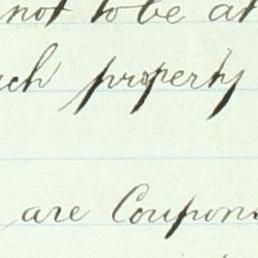 not to be at
uch property
are Coupons